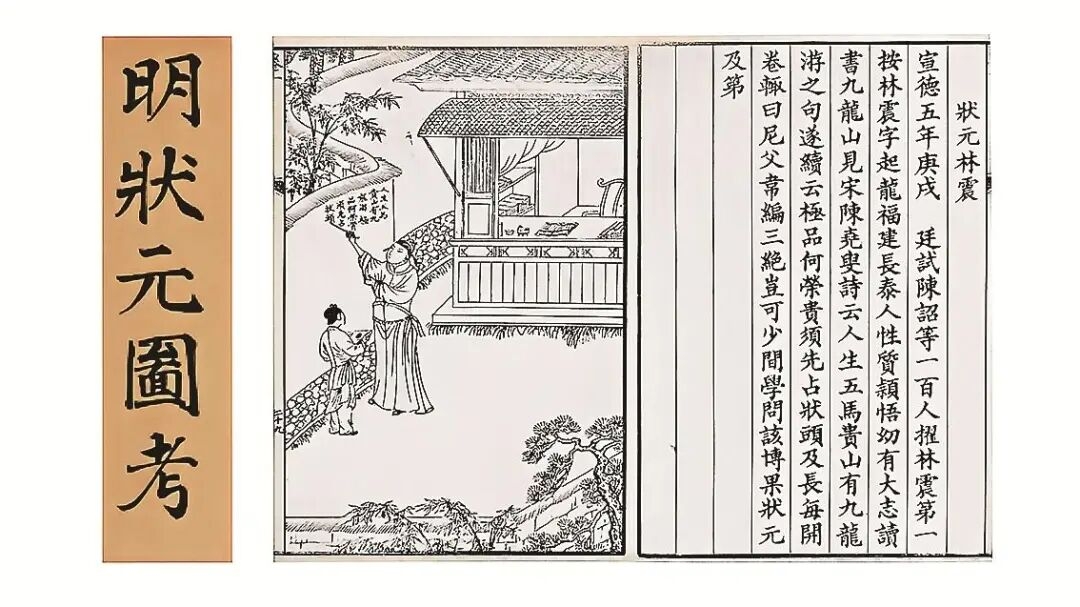 明狀元圖考
狀元林震
宣德五年庚戌　廷試陳詔等一百人擢林震第一
按林震字起龍福建長泰人性質頴悟幼有大志讀
書九龍山見宋陳堯叟詩云人生五馬貴山有九龍
游之句遂續云極品何榮貴須先占狀頭及長每開
卷輒曰尼父韋編三絶豈可少間學問該博果狀元
及第
人生五馬
貴山有九
龍游極
品何榮貴
須先占
狀頭